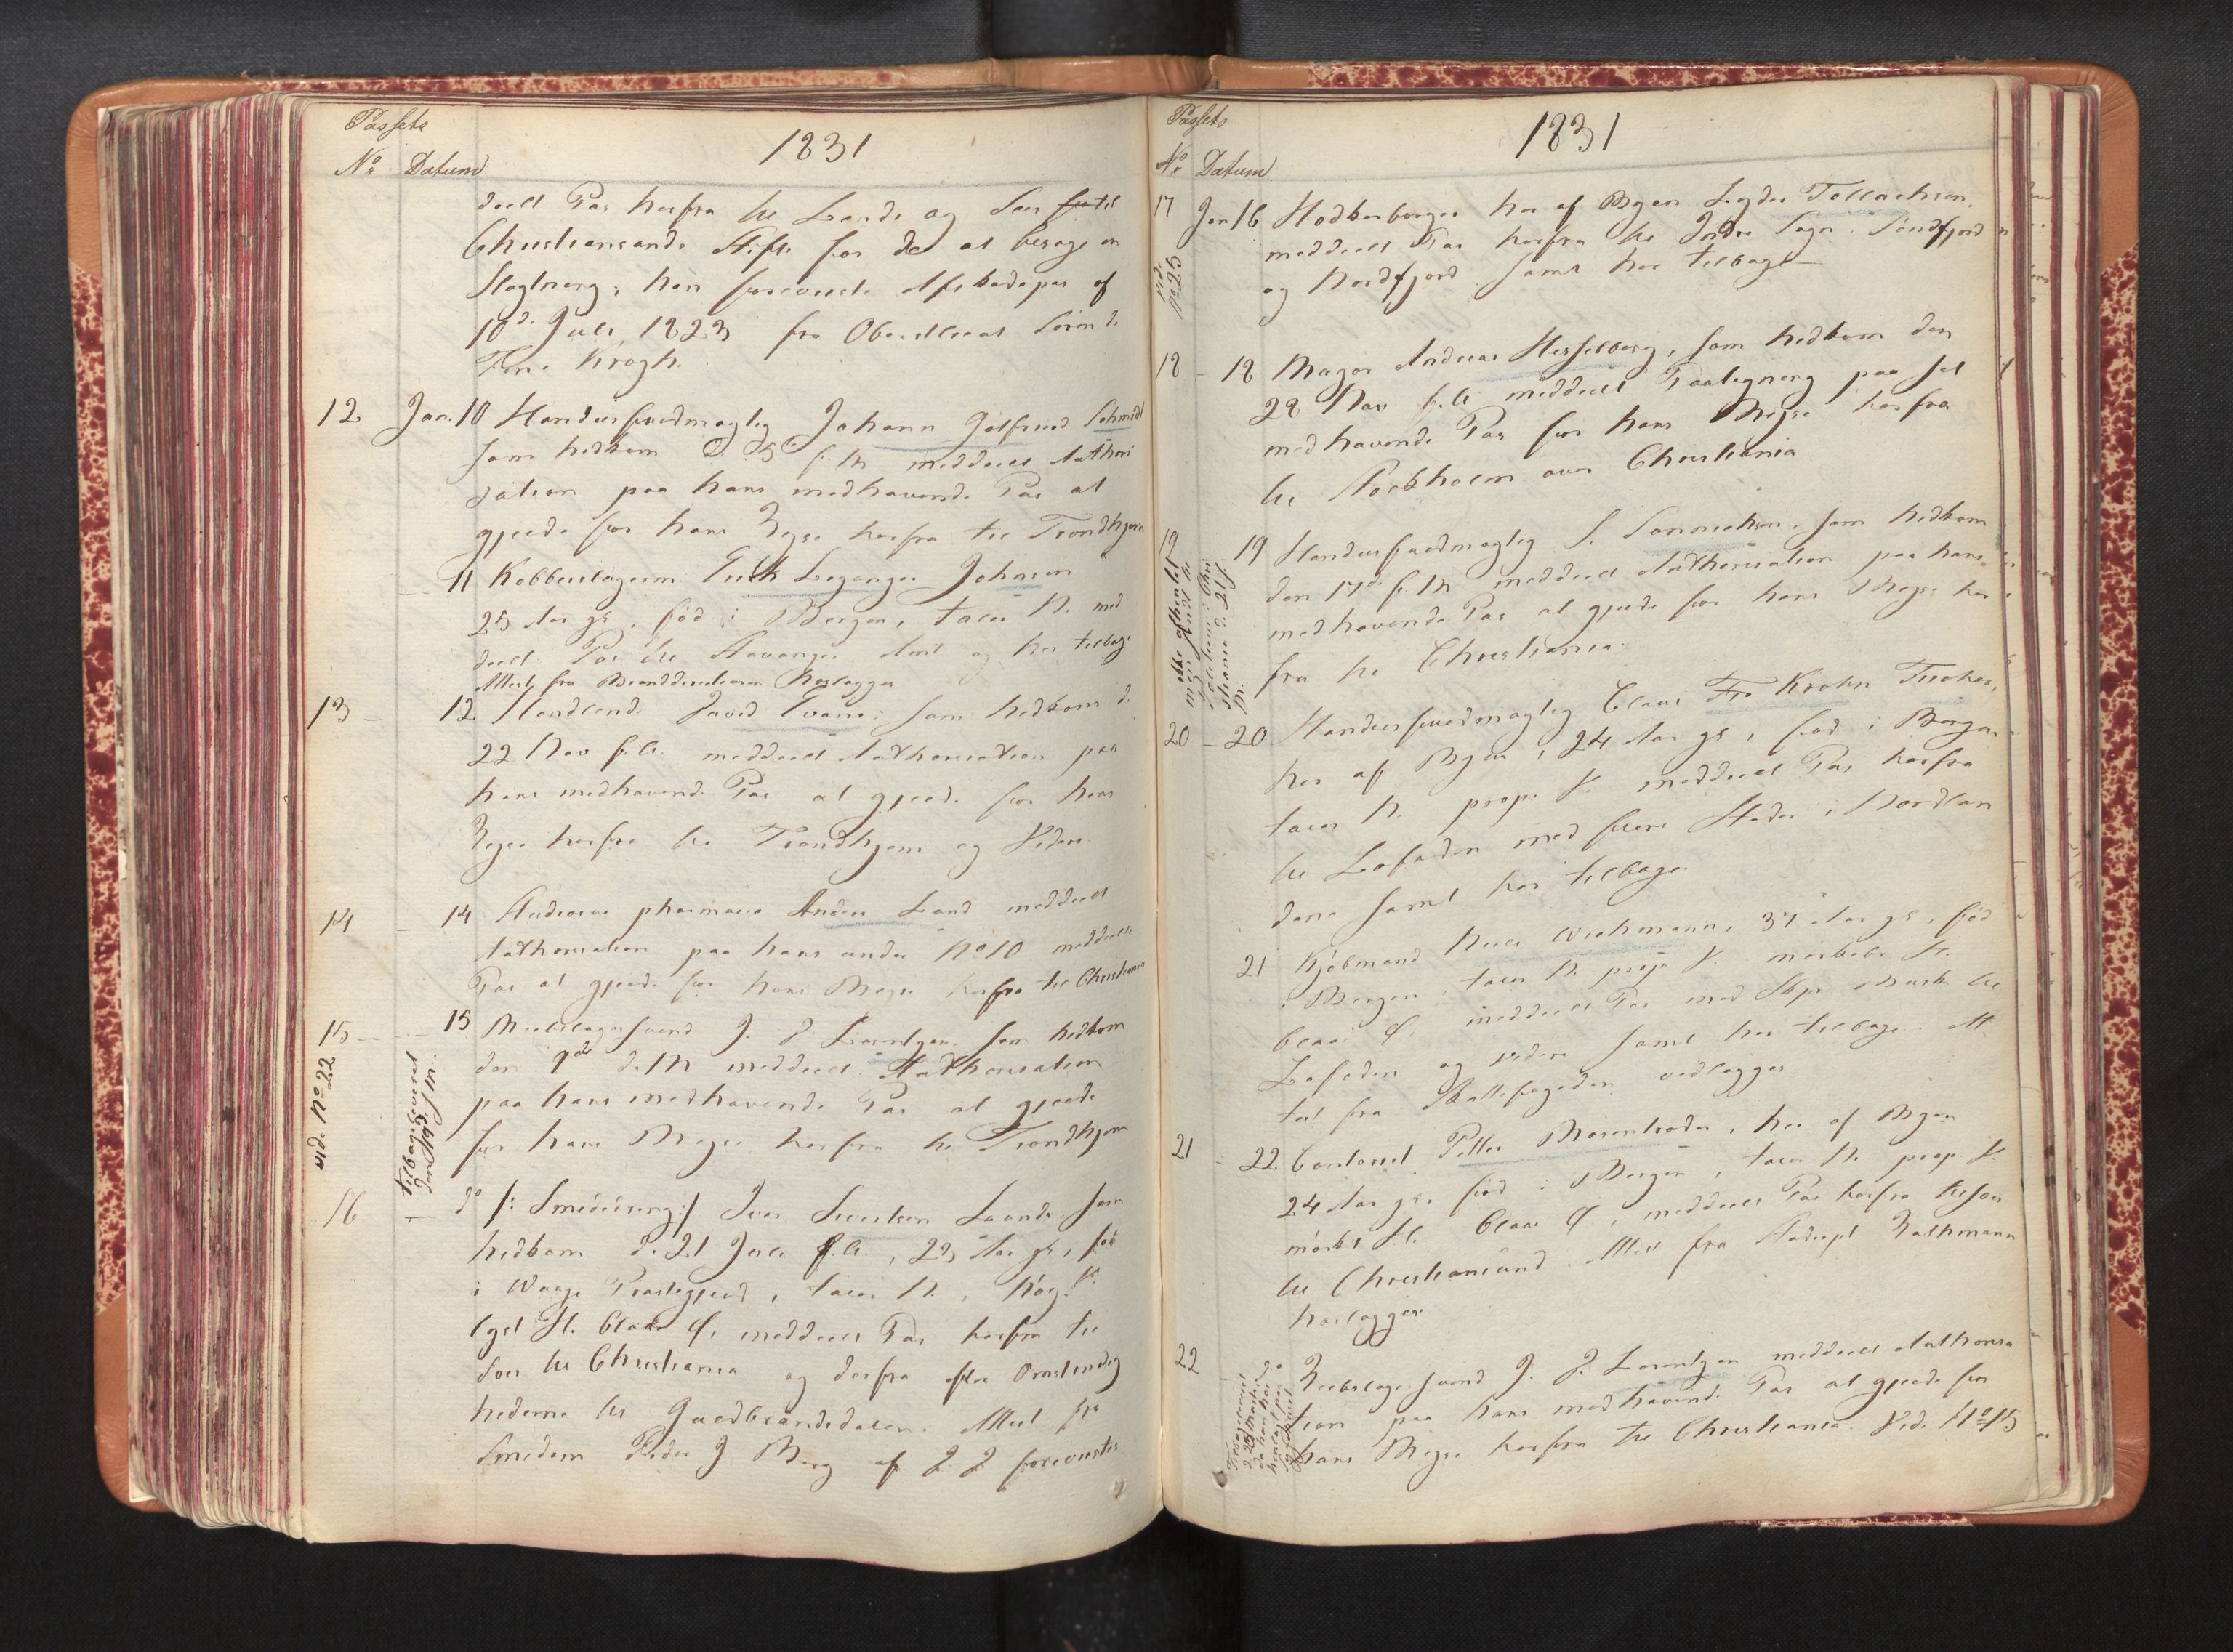 Passets
No Datum
1831
deelt Pas herfra til Lands og Søes
Christiansands Stift for de at besøge en
Slægtning, han foreviste Afskedspas af
10de Juli 1823 fra Oberstlieut
Krogh.
12 Jan. 10 Handelsfuldmægtig Johann Gotfried Schmidt
som hidkom d. 5 f. M meddeelt Authori
sation paa hans medhavende Pas at
gjælde for hans Rejse herfra til Trondhjem
11 Kobberslagersv Erik Leganger Johnsen
25 Aar gl, fød i Bergen, taler N. med
deelt Pas til Stavanger Amt og her tilbage
Attest fra Branddirecteuren
13 - 12. Handlende David Evans som hidkom d.
22 Nov f. A. meddeelt Authorisation paa
hans medhavende Pas at gjælde for hans
Rejse herfra til Trondhjem og Viden
14 - 14 Studiosus pharmacia Anders Land meddeelt
Authorisation paa hans under No 10 meddeelte
Pas at gjælde for hans Rejse herfra til Christiania
15 - 15 Reebslagersvend J. J Lorentzen som hidkom
den 7de d. M meddeelt Authorisation
paa hans medhavende Pas at gjælde
for hans Rejse herfra til Trondhjem
vide No 22
tilbageleveret
16 - do /: Smededreng :/ Iver Iversen Laande som
hidkom d. 21 Juli f. A., 23 Aar gl, fød
i Waage Præstegjeld, taler N.,
lyst H. blaae Ø, meddeelt Pas herfra til
Søes til Christiania og derfra efter Omstændig
hederne til Guldbrandsdalen. Attest fra
Smeden Peder J Berg af D. D. forevistes
Passets
No Datum
1831
17 Jan 16 Høkerborger her af Byen Legder Tollachsen
meddeelt Pas herfra til Indre Sogn Søndfjord
og Nordfjord samt her tilbage
vide No 25
18 - 18 Major Andreas Hesselberg, som hidkom den
28 Nov f. A. meddeelt Paategning paa sit
medhavende Pas for hans Rejse herfra
til Stockholm over Christiania
19 19 Handelsfuldmægtig S. Sonnichsen, som hidkom
den 17de f. M meddeelt Authorisation paa hans
medhavende Pas at gjælde for hans Rejse her
fra til Christiania.
ikke afhentet
20 - 20 Handelsfuldmægtig Claus Krohn Fischer,
her af Byen, 24 Aar gl, fød i Bergen
taler N. prop. V. meddeelt Pas herfra
til Lofoden med flere Steder i Nordlan
dene samt her tilbage.
21 Kjøbmand Niels Wichmann, 37 Aar gl, fød
i Bergen, taler N. prop V. mørkebr. H.
blaae Ø. meddeelt Pas med Skp til
Lofoden og videre samt her tilbage. At
test fra Skattefogeden vedlægges
21 - 22 Contorist Petter Rosenkoder, her af Byen
24 Aar gl. fød i Bergen, taler N. prop V.
mørkt H. blaae Ø, meddeelt Pas herfra tilsøes
til Christiansund. Attest fra Stadscpt Rathmann
herlægges
22 do Reebslagersvend J. J. Lorentzen meddeelt Authorisa
tion paa hans medhavende Pas at gjælde for
hans Rejse herfra til Christiania. Vide No 15